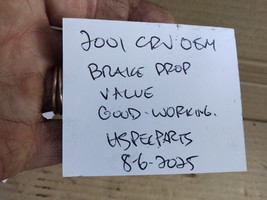 2001 CRV OEM
BRAKE PROP
VALUE
GOOD-WORKING.
HSPECPARTS
8-6-2025